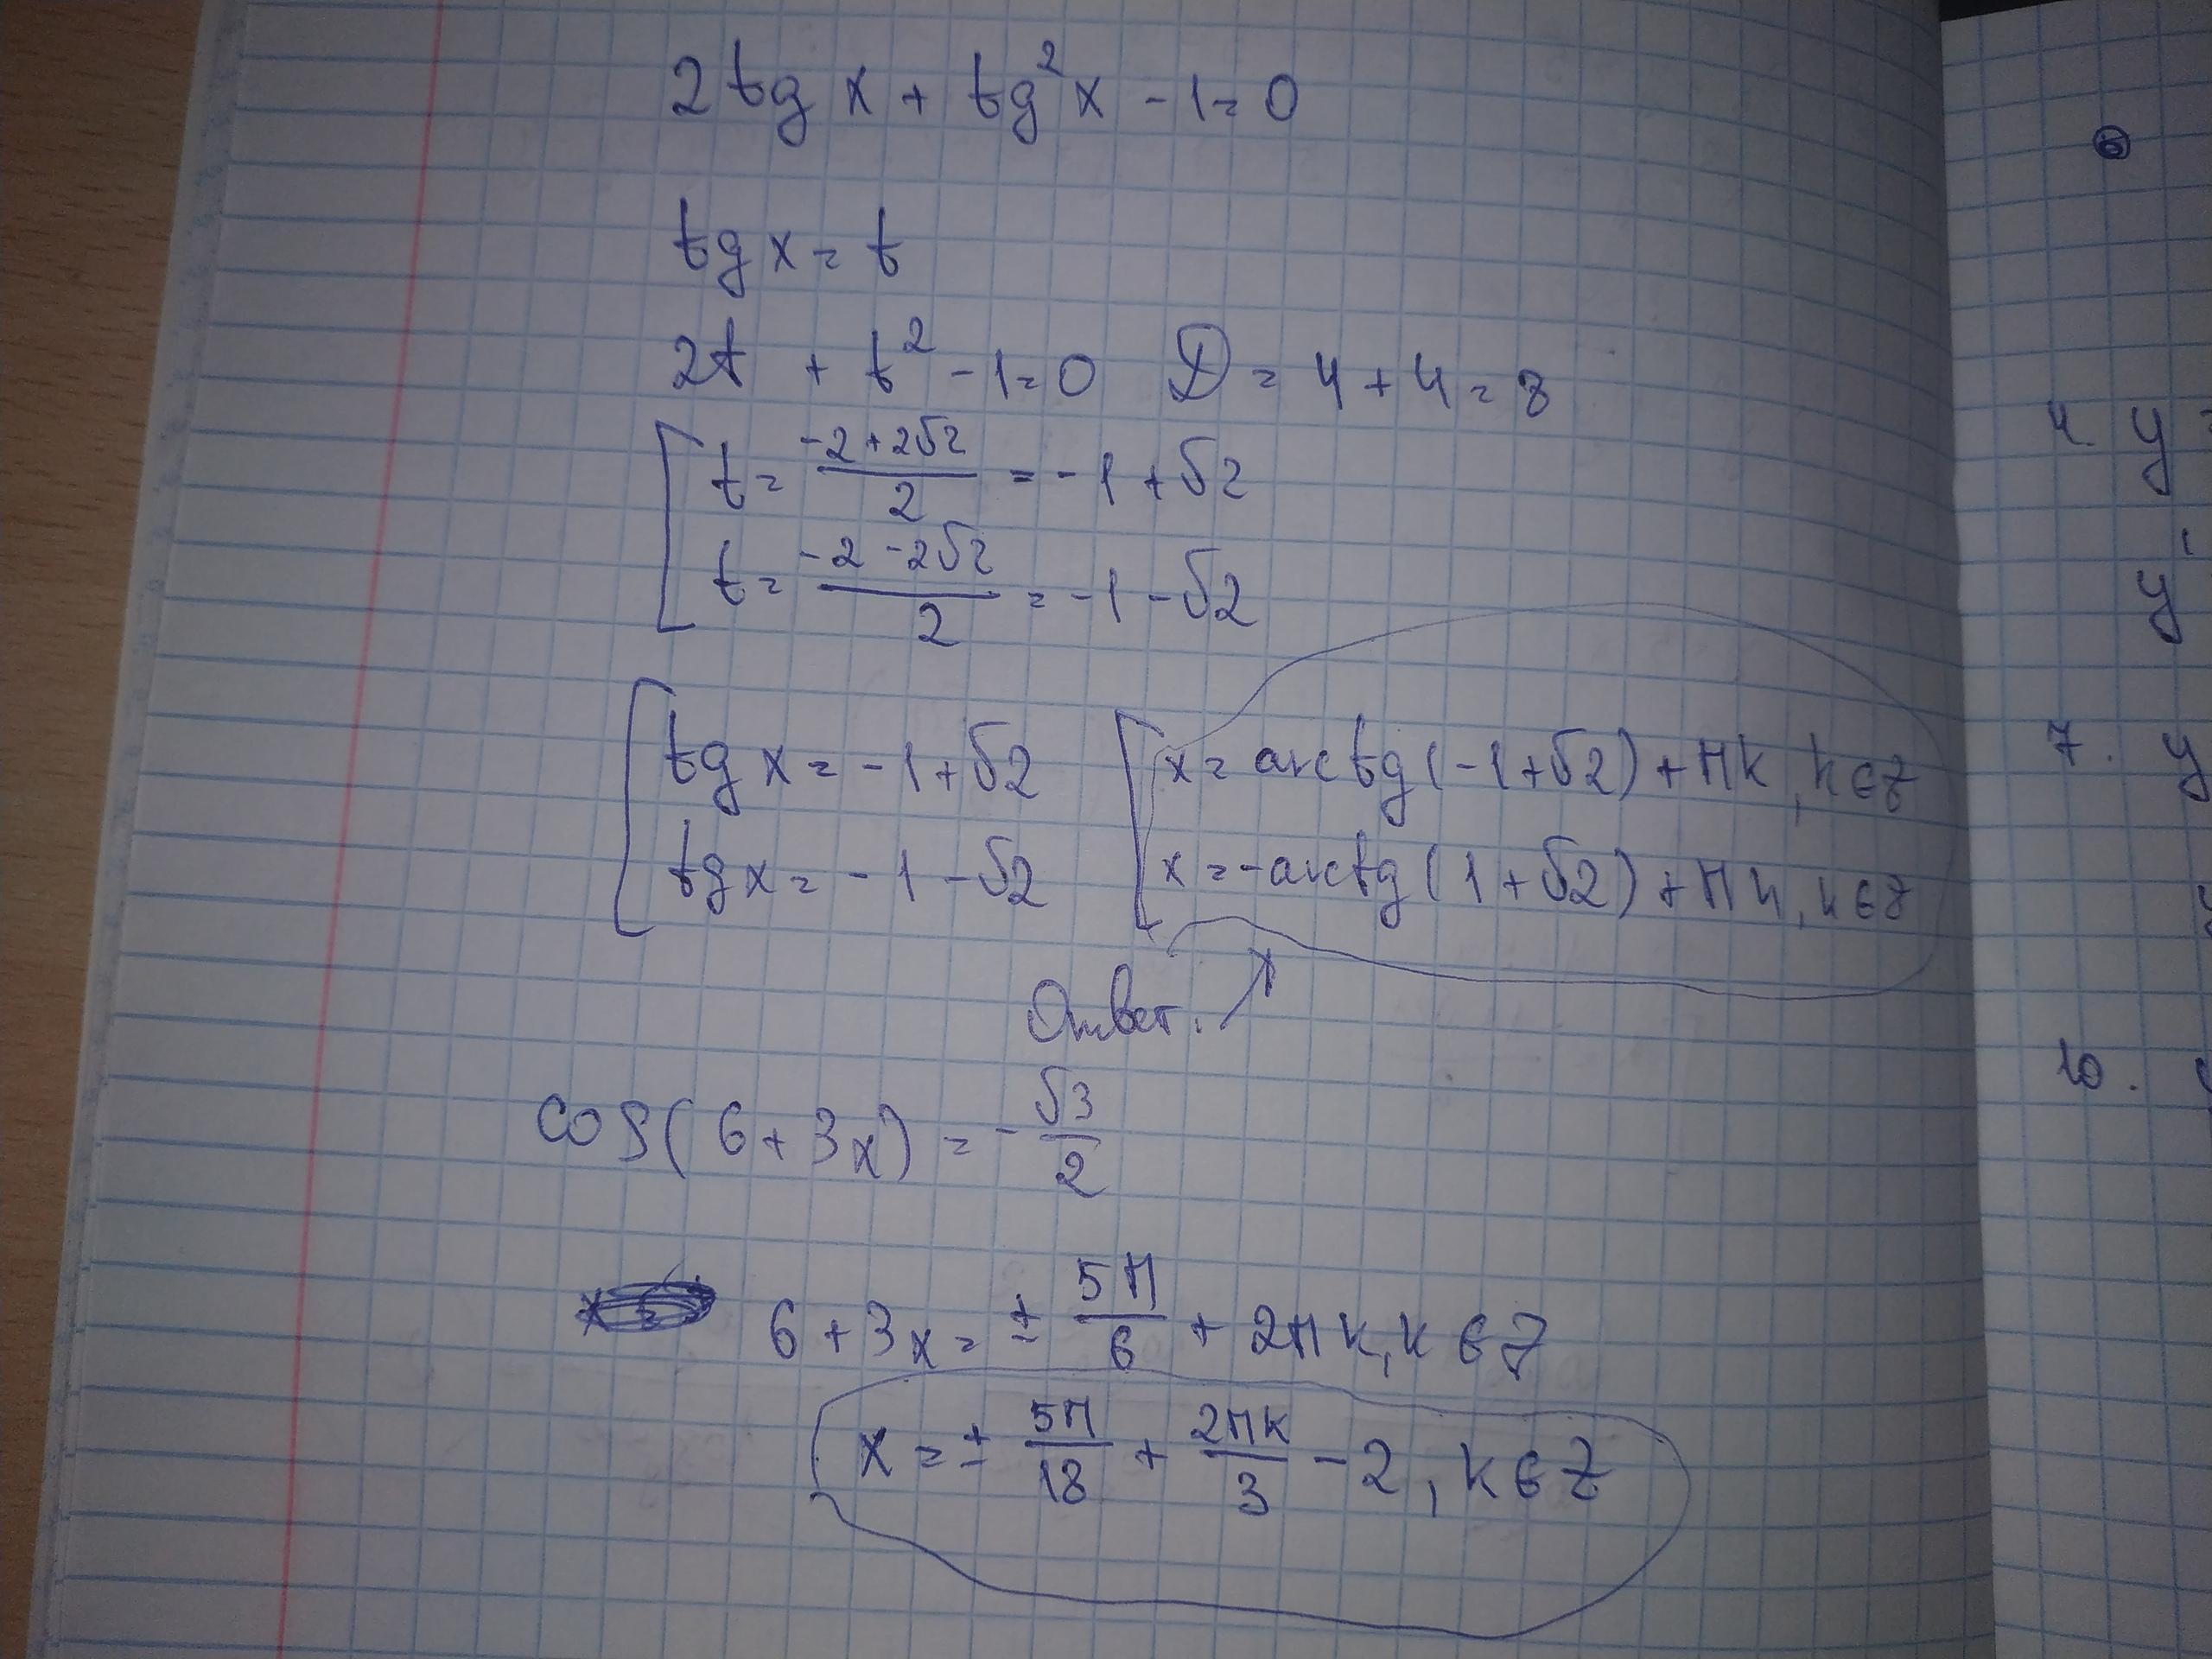 2 tg x + tg²x - 1 = 0
tg x = t
2t + t² - 1 = 0 D = 4 + 4 = 8
t = (-2 + 2√2)/2 = -1 + √2
t = (-2 - 2√2)/2 = -1 - √2
tg x = -1 + √2 x = arctg(-1 + √2) + πk, k ∈ Z
tg x = -1 - √2 x = -arctg(1 + √2) + πk, k ∈ Z
Ответ:
cos(6 + 3x) = -√3/2
6 + 3x = ± 5π/6 + 2πk, k ∈ Z
x = ± 5π/18 + 2πk/3 - 2, k ∈ Z
6
4. y =
y'
7. y
y
10.